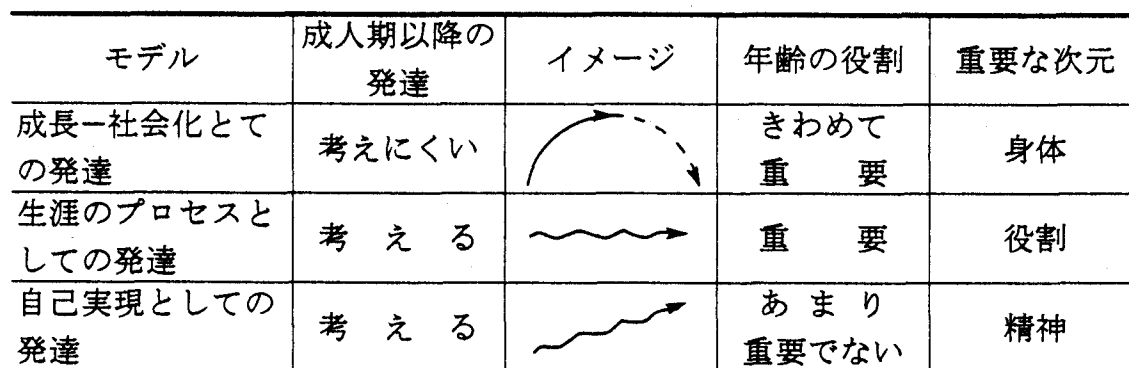 モデル
成人期以降の
発達
イメージ
年齢の役割
重要な次元
成長ー社会化とて
の発達
考えにくい
きわめて
重要
身体
生涯のプロセスと
しての発達
考える
重要
役割
自己実現としての
発達
考える
あまり
重要でない
精神